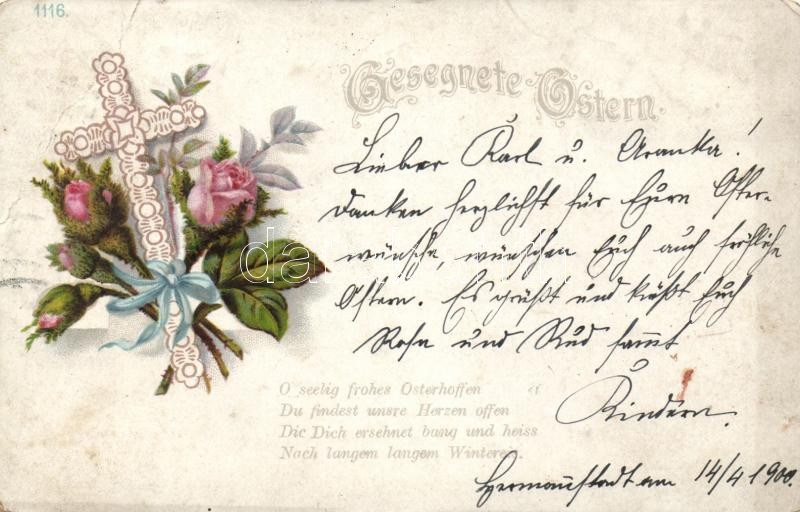 1116.
Gesegnete Ostern.
Lieber Karl u. Aranka!
Danken herzlichst für Eure Oster-
wünsche, wünschen Euch auch fröhliche
Ostern. Es grüßt und küßt Euch
Rosa und Rud samt
Kindern.
O seelig frohes Osterhoffen
Du findest unsre Herzen offen
Die Dich ersehnet bang und heiss
Nach langem langem Wintereis.
Hermannstadt am 14/4 1900.
da